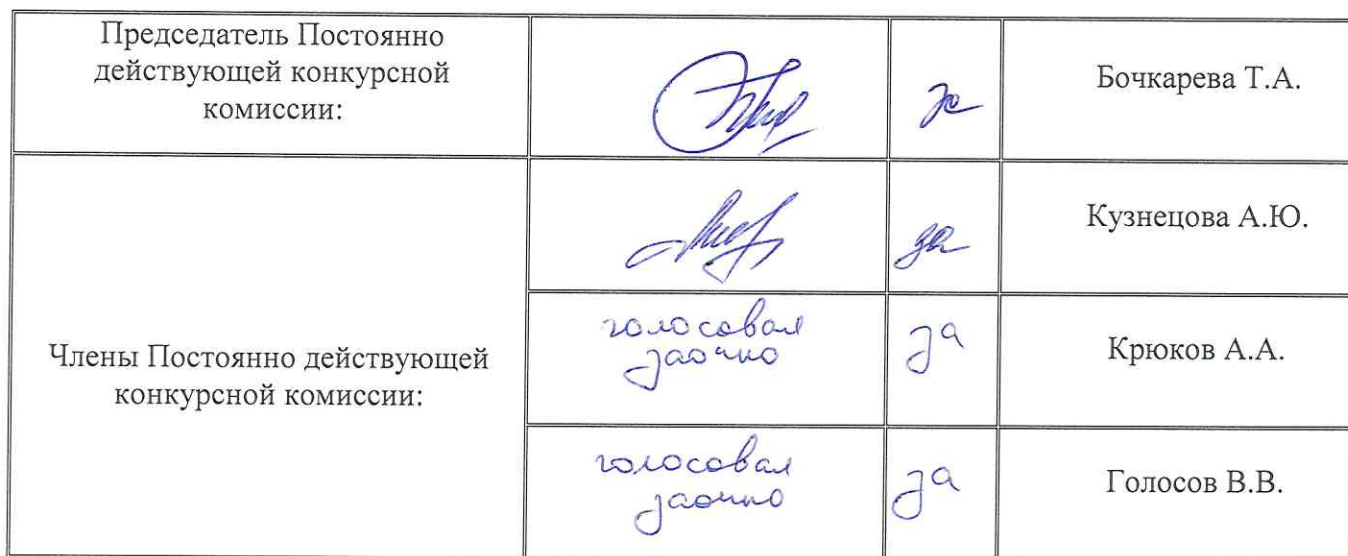 Председатель Постоянно
действующей конкурсной
комиссии:
за
Бочкарева Т.А.
Члены Постоянно действующей
конкурсной комиссии:
за
Кузнецова А.Ю.
голосовал
заочно
за
Крюков А.А.
голосовал
заочно
за
Голосов В.В.